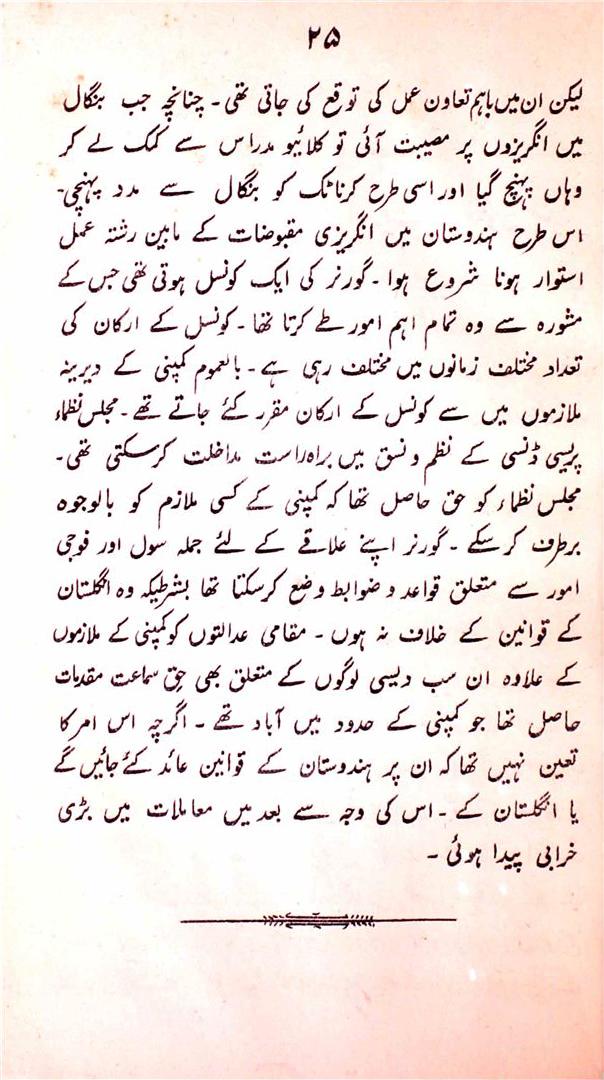 ۲۵
لیکن ان میں باہم تعاون عمل کی توقع کی جاتی تھی۔ چنانچہ جب بنگال
میں انگریزوں پر مصیبت آئی تو کلائیو مدراس سے کمک لے کر
وہاں پہنچ گیا اور اسی طرح کرناٹک کو بنگال سے مدد پہنچی۔
اس طرح ہندوستان میں انگریزی مقبوضات کے مابین رشتہ عمل
استوار ہونا شروع ہوا۔ گورنر کی ایک کونسل ہوتی تھی جس کے
مشورہ سے وہ تمام اہم امور طے کرتا تھا۔ کونسل کے ارکان کی
تعداد مختلف زمانوں میں مختلف رہی ہے۔ بالعموم کمپنی کے دیرینہ
ملازموں میں سے کونسل کے ارکان مقرر کئے جاتے تھے۔ مجلس نظماء
پریسی ڈنسی کے نظم و نسق میں براہ راست مداخلت کرسکتی تھی۔
مجلس نظماء کو حق حاصل تھا کہ کمپنی کے کسی ملازم کو بالوجوہ
برطرف کر سکے۔ گورنر اپنے علاقے کے لئے جملہ سول اور فوجی
امور سے متعلق قواعد و ضوابط وضع کرسکتا تھا بشرطیکہ وہ انگلستان
کے قوانین کے خلاف نہ ہوں۔ مقامی عدالتوں کو کمپنی کے ملازموں
کے علاوہ ان سب دیسی لوگوں کے متعلق بھی حق سماعت مقدمات
حاصل تھا جو کمپنی کے حدود میں آباد تھے۔ اگرچہ اس امر کا
تعین نہیں تھا کہ ان پر ہندوستان کے قوانین عائد کئے جائیں گے
یا انگلستان کے۔ اس کی وجہ سے بعد میں معاملات میں بڑی
خرابی پیدا ہوئی۔